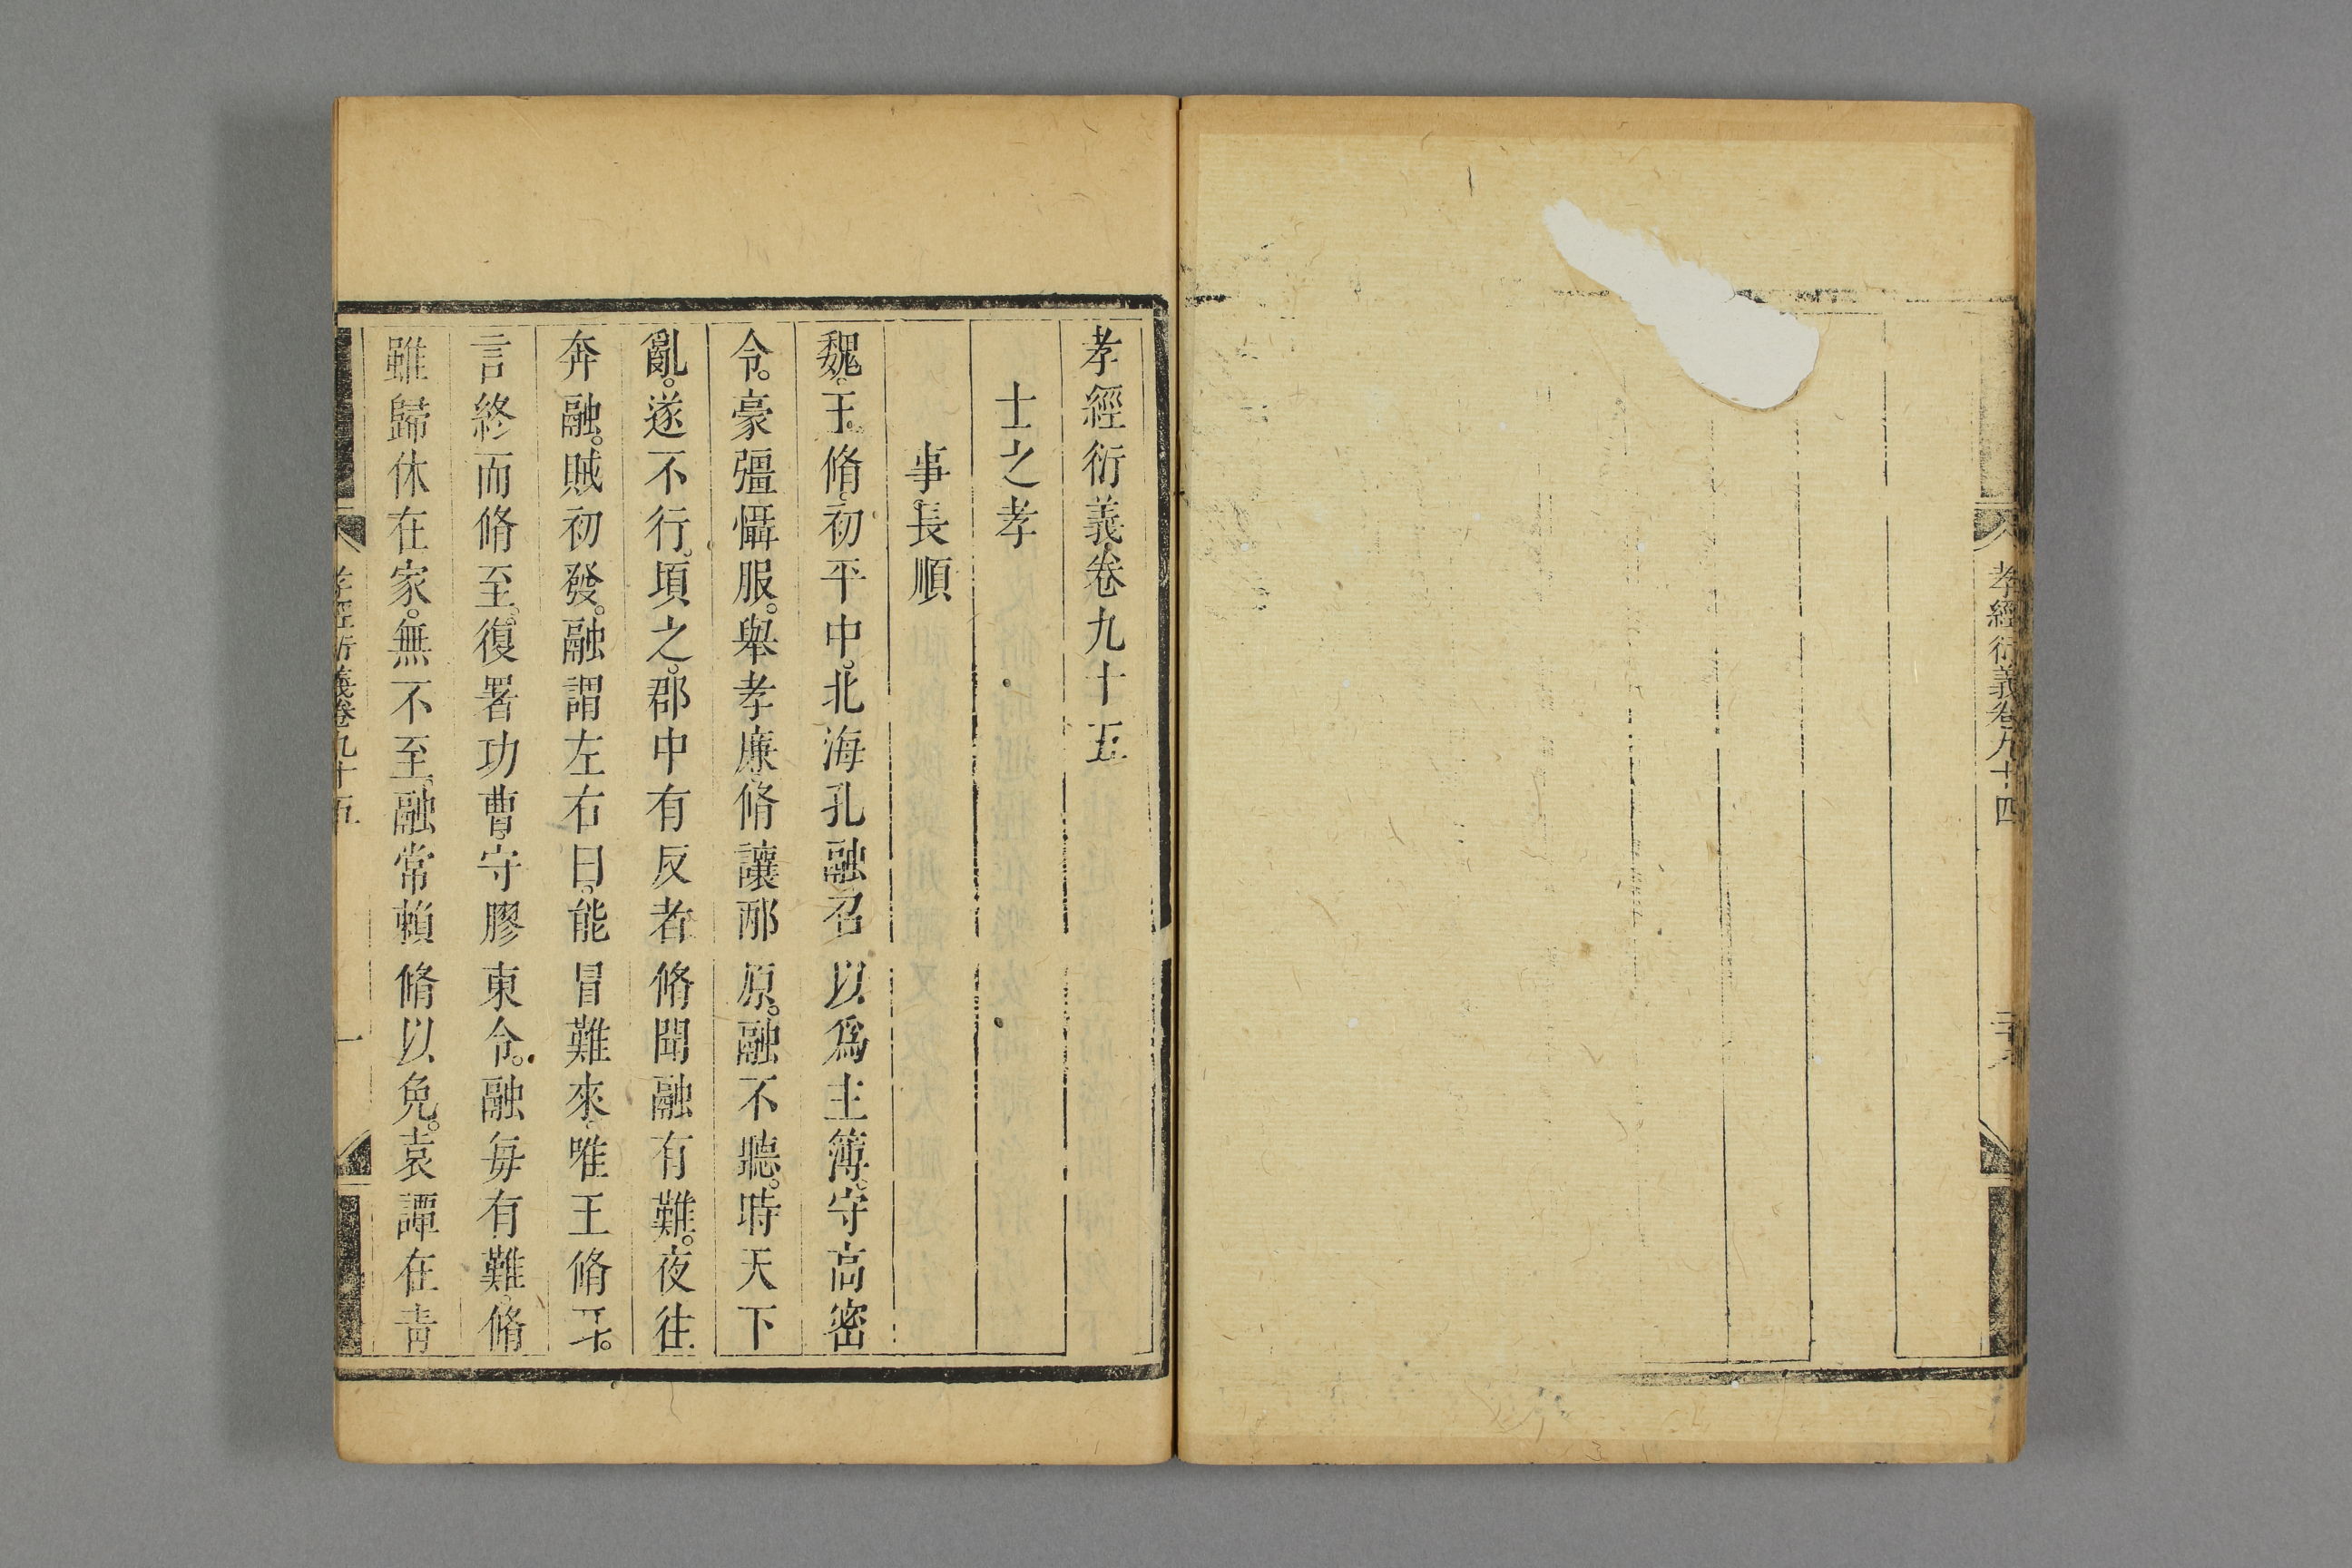 孝經衍義卷九十四
孝經衍義卷九十五
士之孝
事長順
魏。王脩。初平中。北海孔融召以爲主簿。守高密
令。豪彊懾服。舉孝廉。脩讓邴原。融不聽。時天下
亂。遂不行。頃之。郡中有反者。脩聞融有難。夜往
奔融。賊初發。融謂左右曰。能冒難來。唯王脩耳。
言終而脩至。復署功曹。守膠東令。融每有難。脩
雖歸休在家。無不至。融常賴脩以免。袁譚在青
孝經衍義卷九十五
一